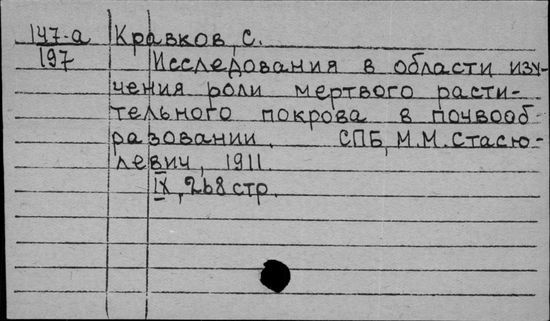 147-а Кравков, С.
197 Исследования в области изу-
чения роли мертвого расти-
тельного покрова в почвооб-
разовании. СПБ, М.М. Стасю-
левич, 1911.
IX, 268 стр.